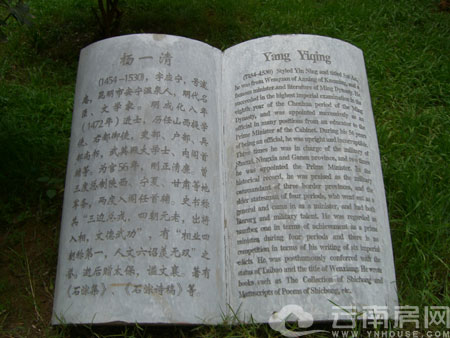 杨一清
(1454-1530), 字应宁, 号邃
庵, 昆明市安宁温泉人, 明代名
臣、文学家。明成化八年
(1472年) 进士, 历任山西提学
使、右都御使、吏部、户部、兵
部尚书, 武英殿大学士、内阁首
辅等, 为官56年, 刚正清廉。曾
三度总制陕西、宁夏、甘肃等地
军务, 两度入阁任首辅, 史书称
其“三边总戎, 四朝元老, 出将
入相, 文德武功”, 有“相业四
朝称第一, 人文六诏羡无双”之
誉。逝后赠太保, 谥文襄。著有
《石淙集》、《石淙诗稿》等。
Yang Yiqing
(1454-1530) Styled Yin Ning and titled
he was from Wenquan of Anning of Kunming, and a
famous minister and literature of Ming Dynasty. He
succeeded in the highest imperial examination in the
eighth year of the Chenhua period of the Ming
Dynasty, and was appointed successively as an
official in many positions from an educator to the
Prime Minister of the Cabinet. During his 56 years
of being an official, he was upright and incorruptible.
Three times he was in charge of the military of
Shanxi, Ningxia and Gansu province, and two times
he was appointed the Prime Minister. In the
historical record, he was praised as the military
commandant of three border provinces, and the
elder statesman of four periods, who went out as a
general and came in as a minister, and had both
literary and military talent. He was regarded as
number one in terms of achievement as a prime
minister during four periods and there is no
competition in terms of his writing of six imperial
edicts. He was posthumously conferred with the
status of Taibao and the title of Wenxiang. He wrote
books such as The Collection of Shichong and
Manuscripts of Poems of Shichong, etc.
云南房网
WWW.YNHOUSE.COM